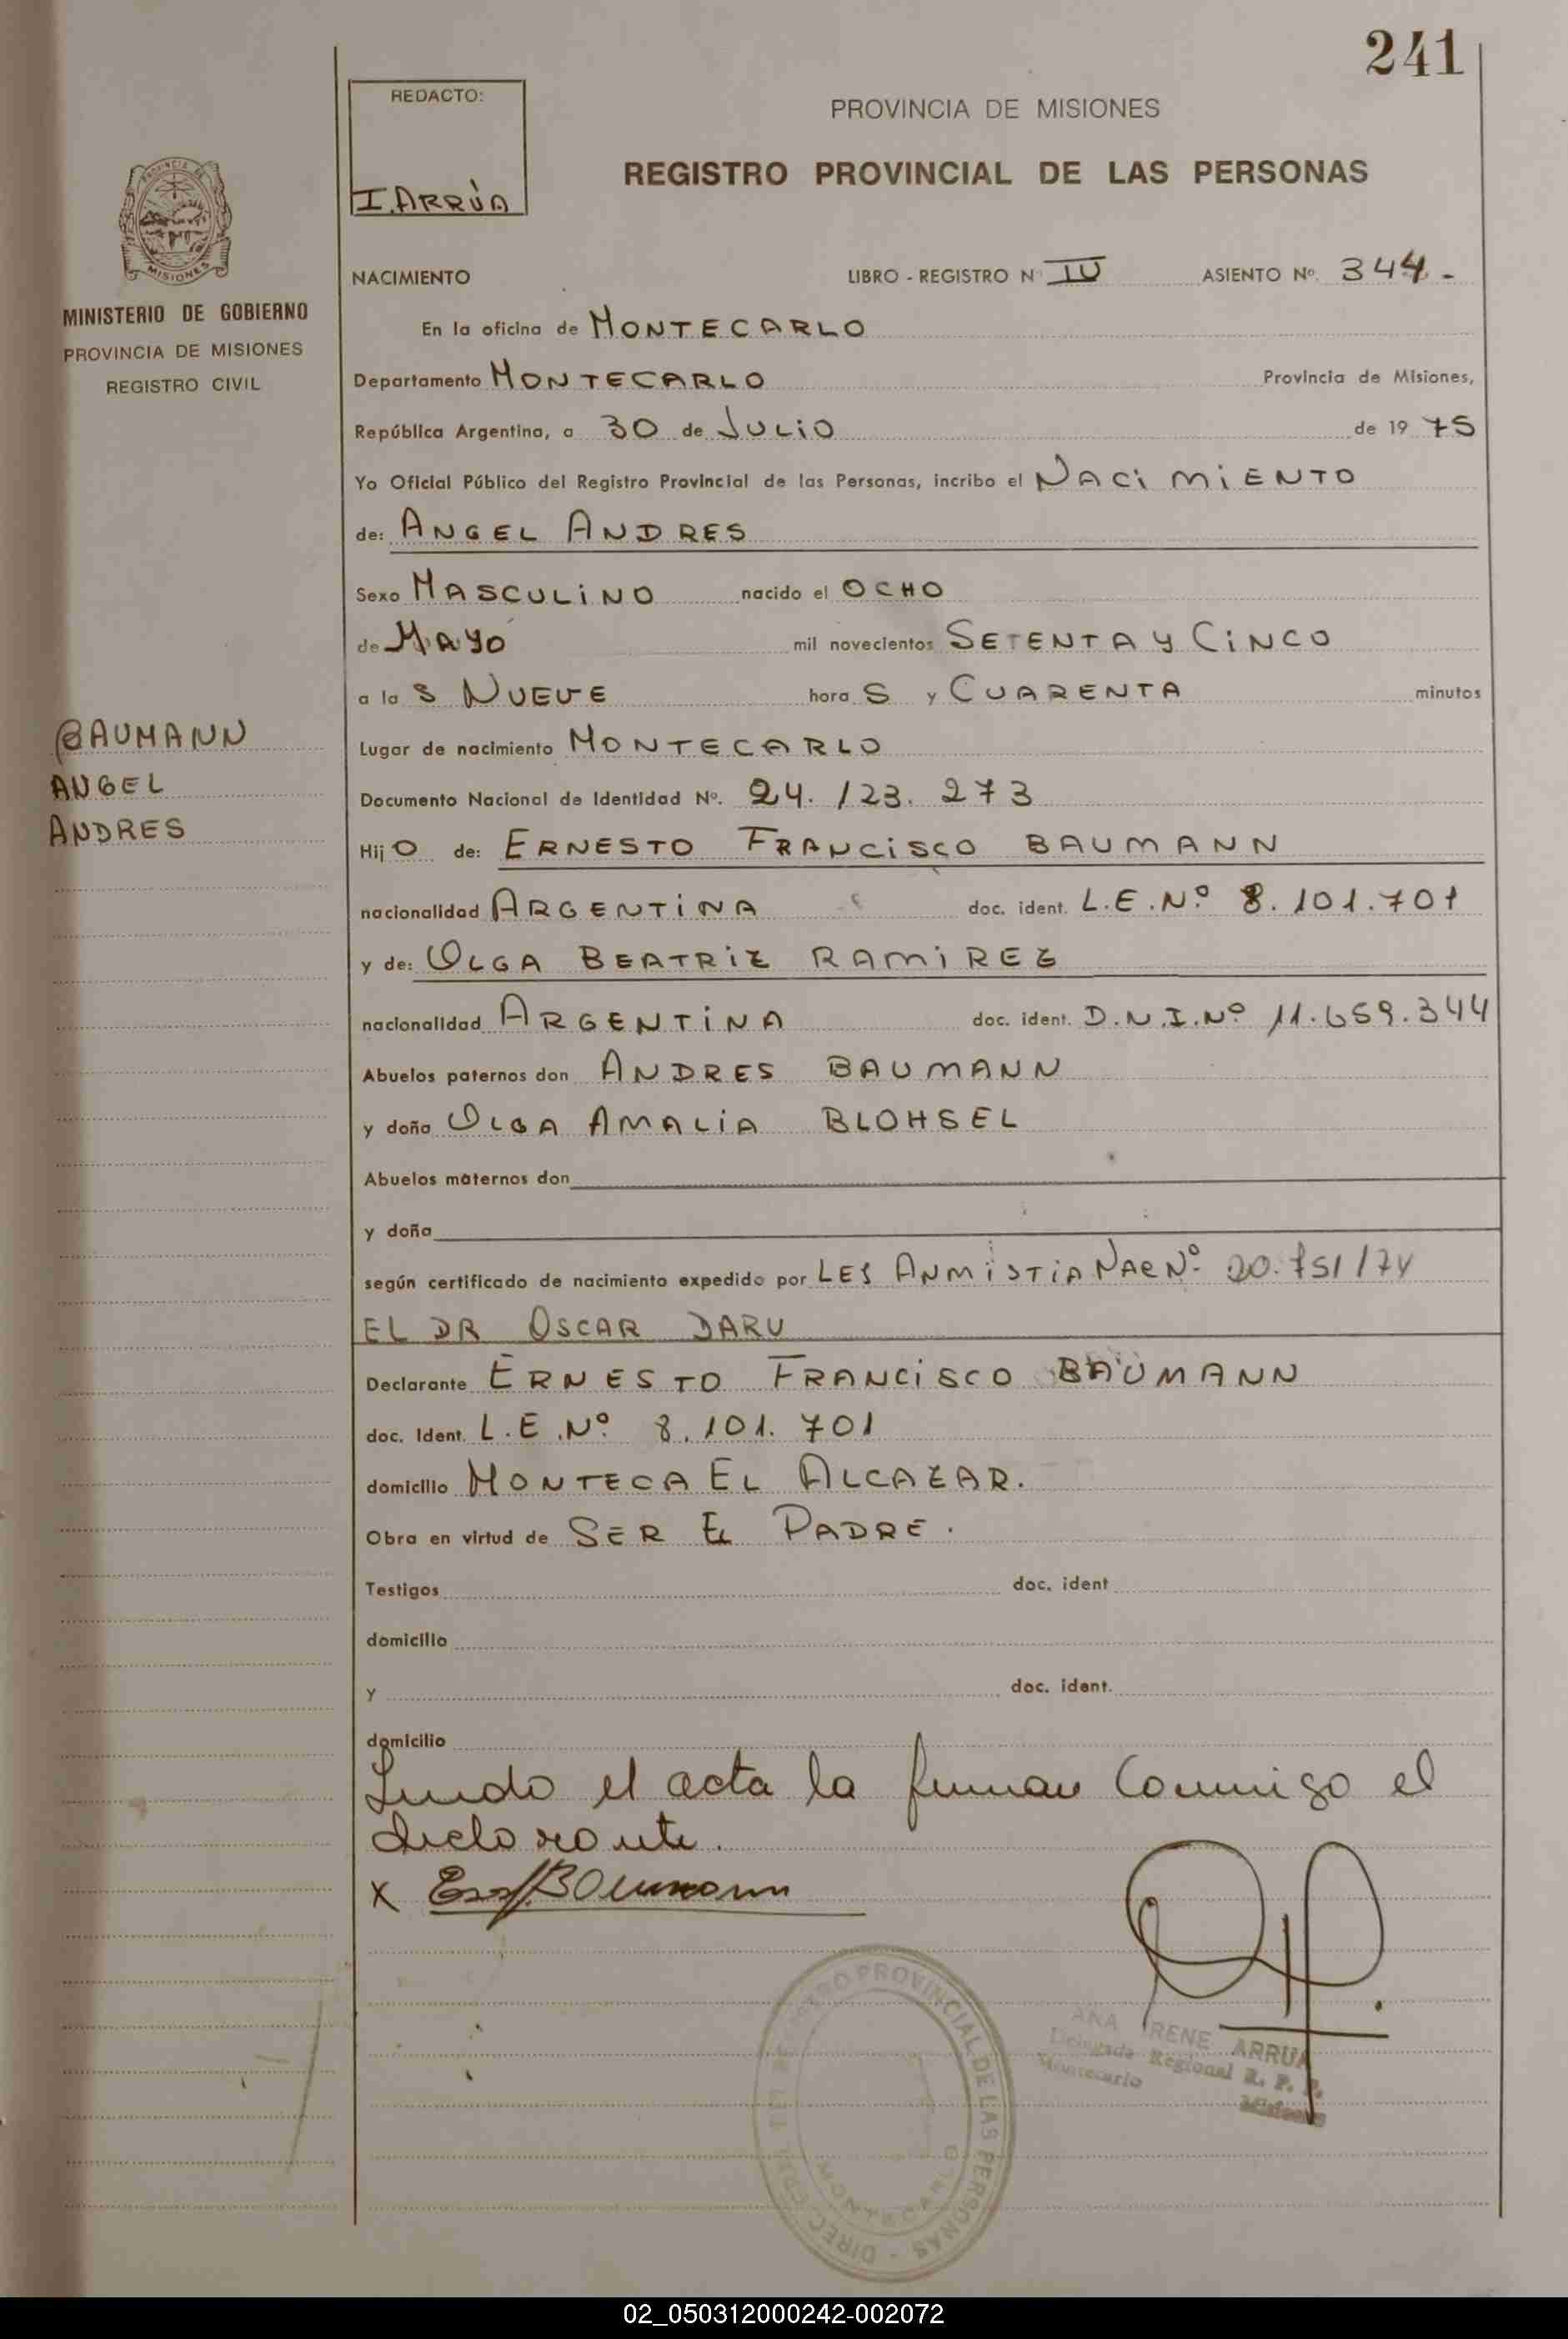 241
REDACTO:
I. ARRÙA
PROVINCIA DE MISIONES
REGISTRO PROVINCIAL DE LAS PERSONAS
PROVINCIA DE
MISIONES
MINISTERIO DE GOBIERNO
PROVINCIA DE MISIONES
REGISTRO CIVIL
NACIMIENTO LIBRO - REGISTRO Nº IV ASIENTO Nº. 344.-
En la oficina de MONTECARLO
Departamento MONTECARLO Provincia de Misiones,
República Argentina, a 30 de JULiO de 19 75
Yo Oficial Público del Registro Provincial de las Personas, incribo el NACiMiENTO
de: ANGEL ANDRES
Sexo MASCULiNO nacido el OCHO
de MAYO mil novecientos SETENTA Y CiNCO
a la S NUEVE hora S y CUARENTA minutos
Lugar de nacimiento MONTECARLO
Documento Nacional de Identidad Nº. 24.123.273
BAUMANN
ANGEL
ANDRES
Hij O de: ERNESTO FRANCiSCO BAUMANN
nacionalidad ARGENTiNA doc. ident. L.E.Nº 8.101.701
y de: OLGA BEATRiZ RAMiREZ
nacionalidad ARGENTiNA doc. ident. D.N.I.Nº 11.659.344
Abuelos paternos don ANDRES BAUMANN
y doña OLGA AMALiA BLOHSEL
Abuelos maternos don
y doña
según certificado de nacimiento expedido por LES ANMiSTiA NAC Nº 20.751/74
EL DR OSCAR DARU
Declarante ERNESTO FRANCiSCO BAUMANN
doc. Ident. L.E.Nº 8.101.701
domicilio MONTECA EL ALCAZAR.
Obra en virtud de SER EL PADRE.
Testigos doc. ident
domicilio
y doc. ident.
domicilio
Leido el acta la firman Conmigo el
declarante.
x BAumann
REGISTRO PROVINCIAL DE LAS PERSONAS - DIREC.
MONTECARLO
ANA IRENE ARRUA
Delegada Regional R. P. P.
Montecarlo Misiones
02_050312000242-002072